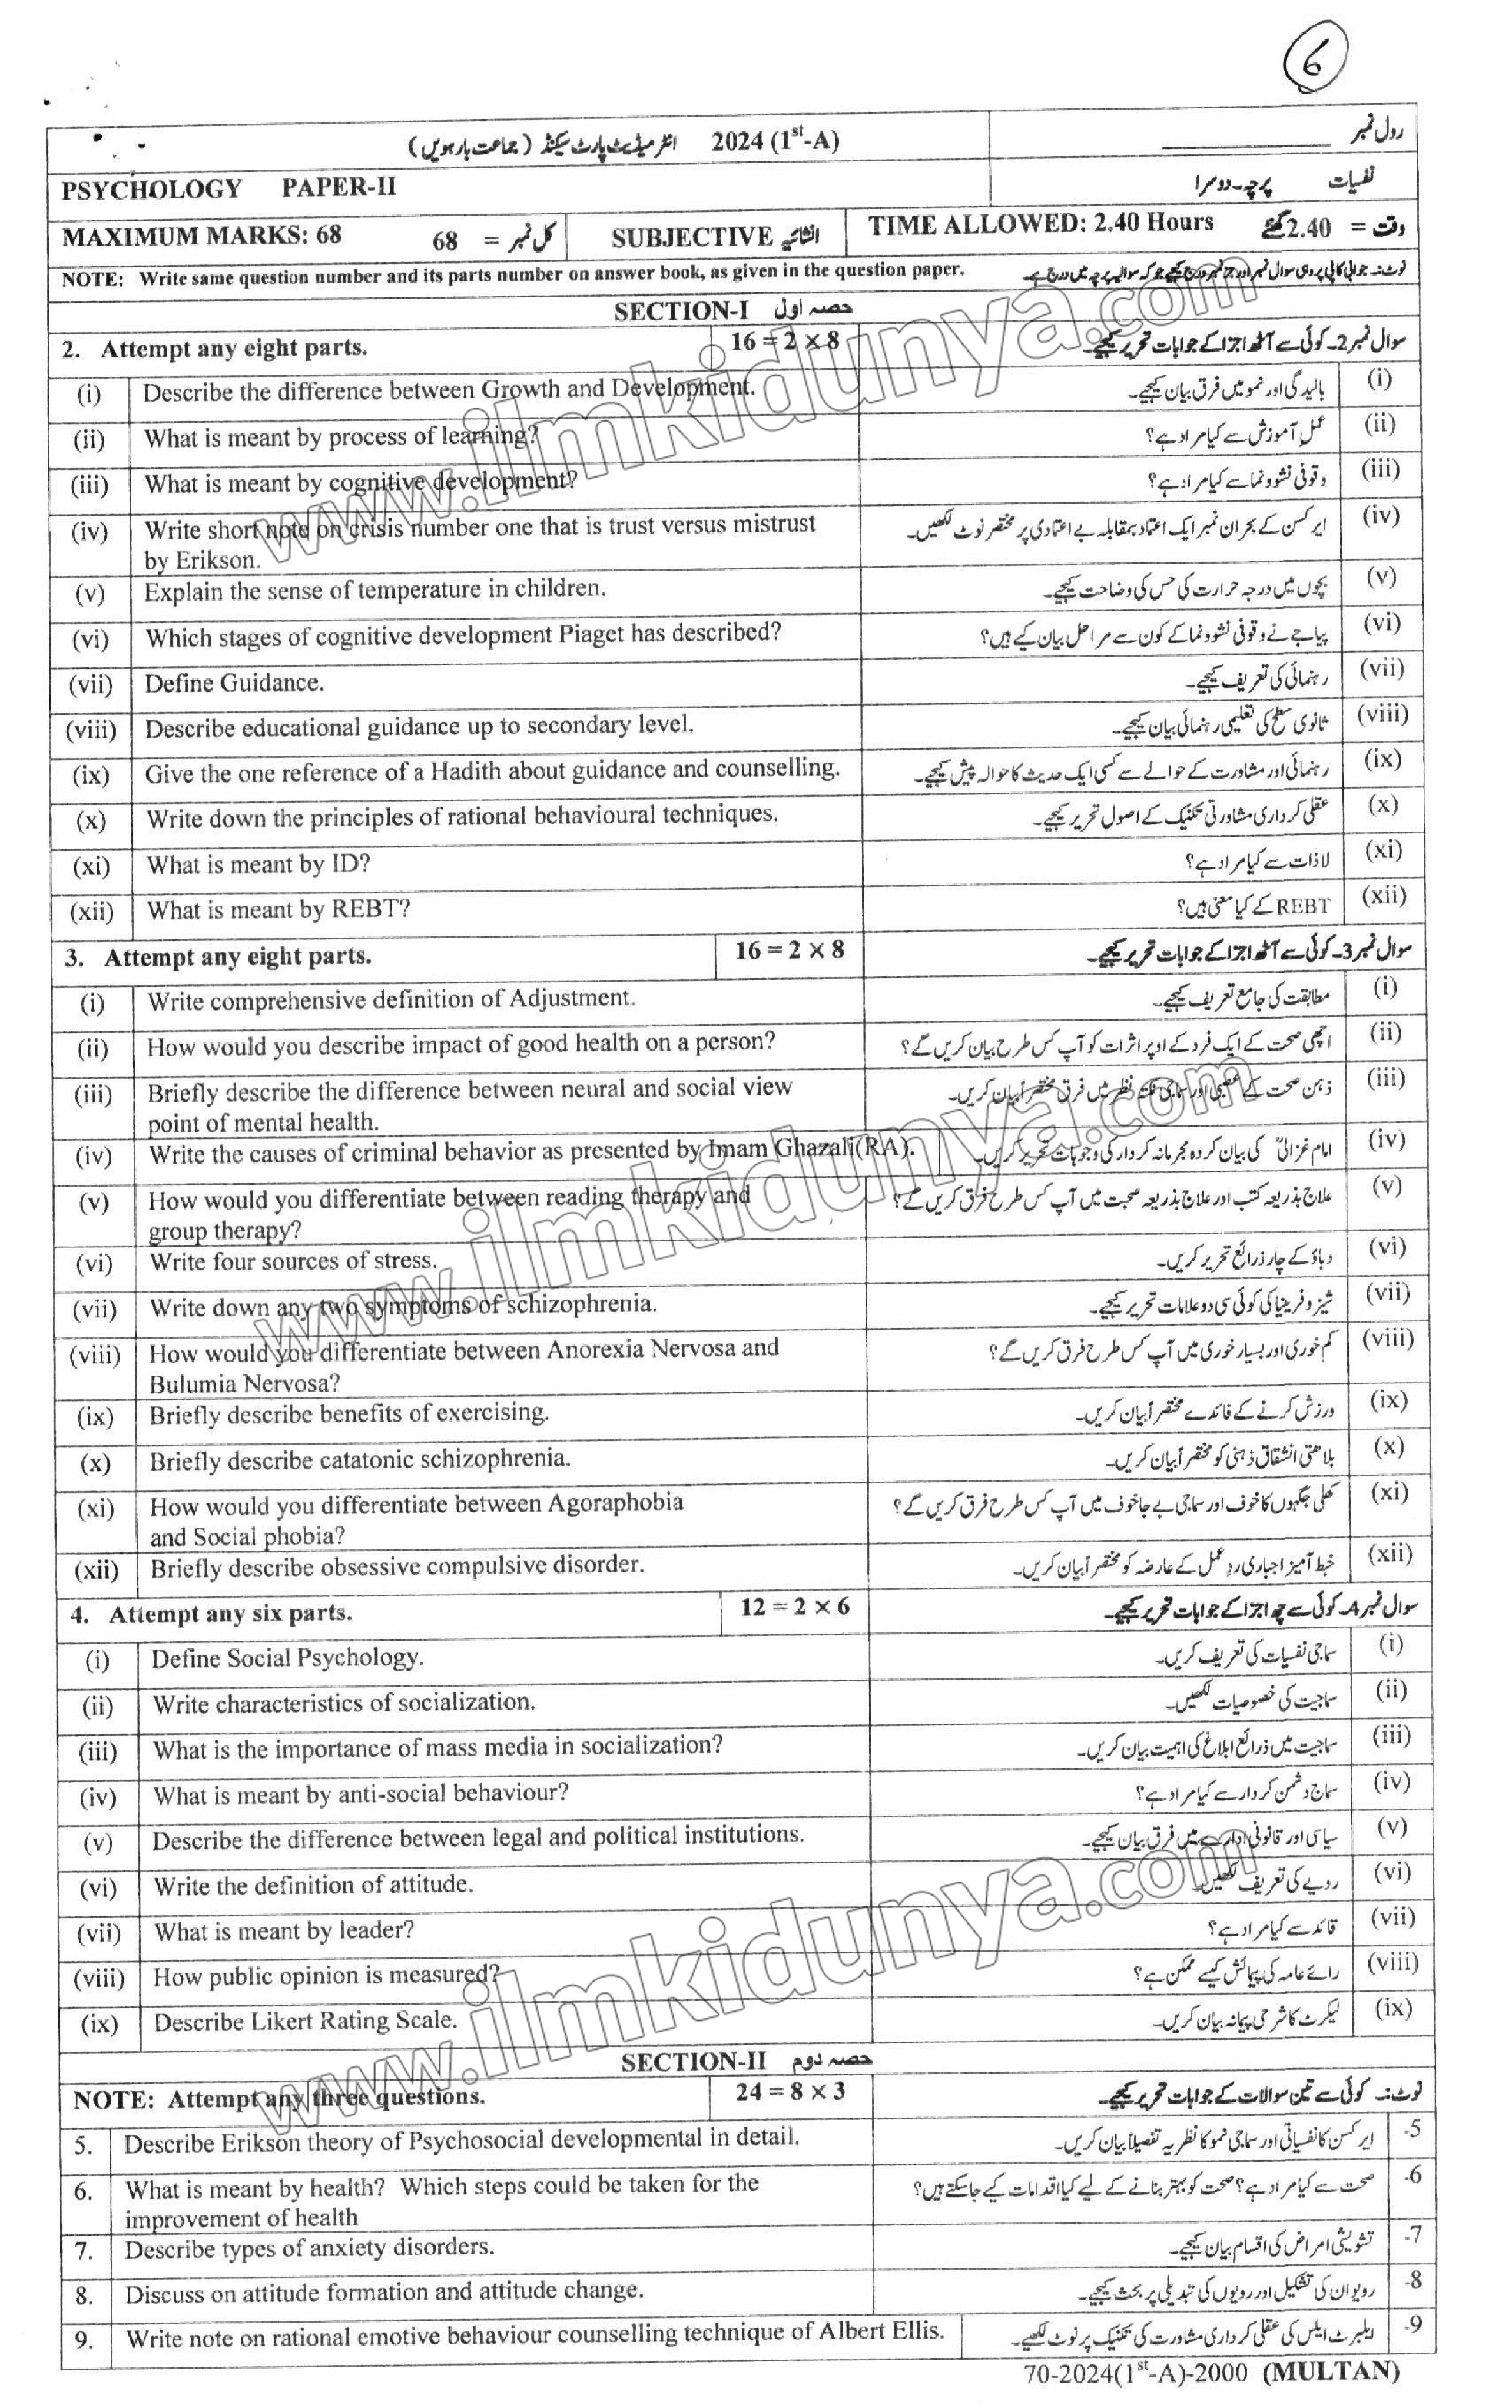 6
2024 (1st-A) انٹرمیڈیٹ پارٹ سیکنڈ (جماعت بارہویں)
رول نمبر ____________
PSYCHOLOGY PAPER-II
نفسیات پرچہ۔دوسرا
MAXIMUM MARKS: 68 کل نمبر = 68
SUBJECTIVE انشائیہ
TIME ALLOWED: 2.40 Hours وقت = 2.40 گھنٹے
NOTE: Write same question number and its parts number on answer book, as given in the question paper.
نوٹ:۔ جوابی کاپی پر وہی سوال نمبر اور جز نمبر درج کیجیے جو کہ سوالیہ پرچہ میں درج ہے۔
SECTION-I حصہ اول
2. Attempt any eight parts. 16 = 2 × 8 سوال نمبر 2۔ کوئی سے آٹھ اجزا کے جوابات تحریر کیجیے۔
(i) Describe the difference between Growth and Development. بالیدگی اور نمو میں فرق بیان کیجیے۔ (i)
(ii) What is meant by process of learning? عمل آموزش سے کیا مراد ہے؟ (ii)
(iii) What is meant by cognitive development? وقوفی نشوونما سے کیا مراد ہے؟ (iii)
(iv) Write short note on crisis number one that is trust versus mistrust ایرکسن کے بحران نمبر ایک اعتماد بمقابلہ بے اعتمادی پر مختصر نوٹ لکھیں۔ (iv)
by Erikson.
(v) Explain the sense of temperature in children. بچوں میں درجہ حرارت کی حس کی وضاحت کیجیے۔ (v)
(vi) Which stages of cognitive development Piaget has described? پیاجے نے وقوفی نشوونما کے کون سے مراحل بیان کیے ہیں؟ (vi)
(vii) Define Guidance. رہنمائی کی تعریف کیجیے۔ (vii)
(viii) Describe educational guidance up to secondary level. ثانوی سطح کی تعلیمی رہنمائی بیان کیجیے۔ (viii)
(ix) Give the one reference of a Hadith about guidance and counselling. رہنمائی اور مشاورت کے حوالے سے کسی ایک حدیث کا حوالہ پیش کیجیے۔ (ix)
(x) Write down the principles of rational behavioural techniques. عقلی کرداری مشاورتی تکنیک کے اصول تحریر کیجیے۔ (x)
(xi) What is meant by ID? لاذات سے کیا مراد ہے؟ (xi)
(xii) What is meant by REBT? REBT کے کیا معنی ہیں؟ (xii)
3. Attempt any eight parts. 16 = 2 × 8 سوال نمبر 3۔ کوئی سے آٹھ اجزا کے جوابات تحریر کیجیے۔
(i) Write comprehensive definition of Adjustment. مطابقت کی جامع تعریف کیجیے۔ (i)
(ii) How would you describe impact of good health on a person? اچھی صحت کے ایک فرد کے اوپر اثرات کو آپ کس طرح بیان کریں گے؟ (ii)
(iii) Briefly describe the difference between neural and social view ذہن صحت کے عصبی اور سماجی نکتہ نظر میں فرق مختصراً بیان کریں۔ (iii)
point of mental health.
(iv) Write the causes of criminal behavior as presented by Imam Ghazali(RA). امام غزالیؒ کی بیان کردہ مجرمانہ کردار کی وجوہات تحریر کریں۔ (iv)
(v) How would you differentiate between reading therapy and علاج بذریعہ کتب اور علاج بذریعہ صحبت میں آپ کس طرح فرق کریں گے؟ (v)
group therapy?
(vi) Write four sources of stress. دباؤ کے چار ذرائع تحریر کریں۔ (vi)
(vii) Write down any two symptoms of schizophrenia. شیزوفرینیا کی کوئی سی دو علامات تحریر کیجیے۔ (vii)
(viii) How would you differentiate between Anorexia Nervosa and کم خوری اور بسیار خوری میں آپ کس طرح فرق کریں گے؟ (viii)
Bulumia Nervosa?
(ix) Briefly describe benefits of exercising. ورزش کرنے کے فائدے مختصراً بیان کریں۔ (ix)
(x) Briefly describe catatonic schizophrenia. انشقاق ذہنی کو مختصراً بیان کریں۔ (x)
(xi) How would you differentiate between Agoraphobia کھلی جگہوں کا خوف اور سماجی بے جا خوف میں آپ کس طرح فرق کریں گے؟ (xi)
and Social phobia?
(xii) Briefly describe obsessive compulsive disorder. خبط آمیز اجباری ردِ عمل کے عارضہ کو مختصراً بیان کریں۔ (xii)
4. Attempt any six parts. 12 = 2 × 6 سوال نمبر 4۔ کوئی سے چھ اجزا کے جوابات تحریر کیجیے۔
(i) Define Social Psychology. سماجی نفسیات کی تعریف کریں۔ (i)
(ii) Write characteristics of socialization. سماجیت کی خصوصیات لکھیں۔ (ii)
(iii) What is the importance of mass media in socialization? سماجیت میں ذرائع ابلاغ کی اہمیت بیان کریں۔ (iii)
(iv) What is meant by anti-social behaviour? سماج دشمن کردار سے کیا مراد ہے؟ (iv)
(v) Describe the difference between legal and political institutions. سیاسی اور قانونی ادارے میں فرق بیان کیجیے۔ (v)
(vi) Write the definition of attitude. رویے کی تعریف لکھیں۔ (vi)
(vii) What is meant by leader? قائد سے کیا مراد ہے؟ (vii)
(viii) How public opinion is measured? رائے عامہ کی پیمائش کیسے ممکن ہے؟ (viii)
(ix) Describe Likert Rating Scale. لیکرٹ کا شرحی پیمانہ بیان کریں۔ (ix)
SECTION-II حصہ دوم
NOTE: Attempt any three questions. 24 = 8 × 3 نوٹ:۔ کوئی سے تین سوالات کے جوابات تحریر کیجیے۔
5. Describe Erikson theory of Psychosocial developmental in detail. ایرکسن کا نفسیاتی اور سماجی نمو کا نظریہ تفصیلاً بیان کریں۔ -5
6. What is meant by health? Which steps could be taken for the صحت سے کیا مراد ہے؟ صحت کو بہتر بنانے کے لیے کیا اقدامات کیے جاسکتے ہیں؟ -6
improvement of health
7. Describe types of anxiety disorders. تشویشی امراض کی اقسام بیان کیجیے۔ -7
8. Discuss on attitude formation and attitude change. رویوان کی تشکیل اور رویوں کی تبدیلی پر بحث کیجیے۔ -8
9. Write note on rational emotive behaviour counselling technique of Albert Ellis. ایلبرٹ ایلس کی عقلی کرداری مشاورت کی تکنیک پر نوٹ لکھیے۔ -9
70-2024(1st-A)-2000 (MULTAN)
www.ilmkidunya.com
www.ilmkidunya.com
www.ilmkidunya.com